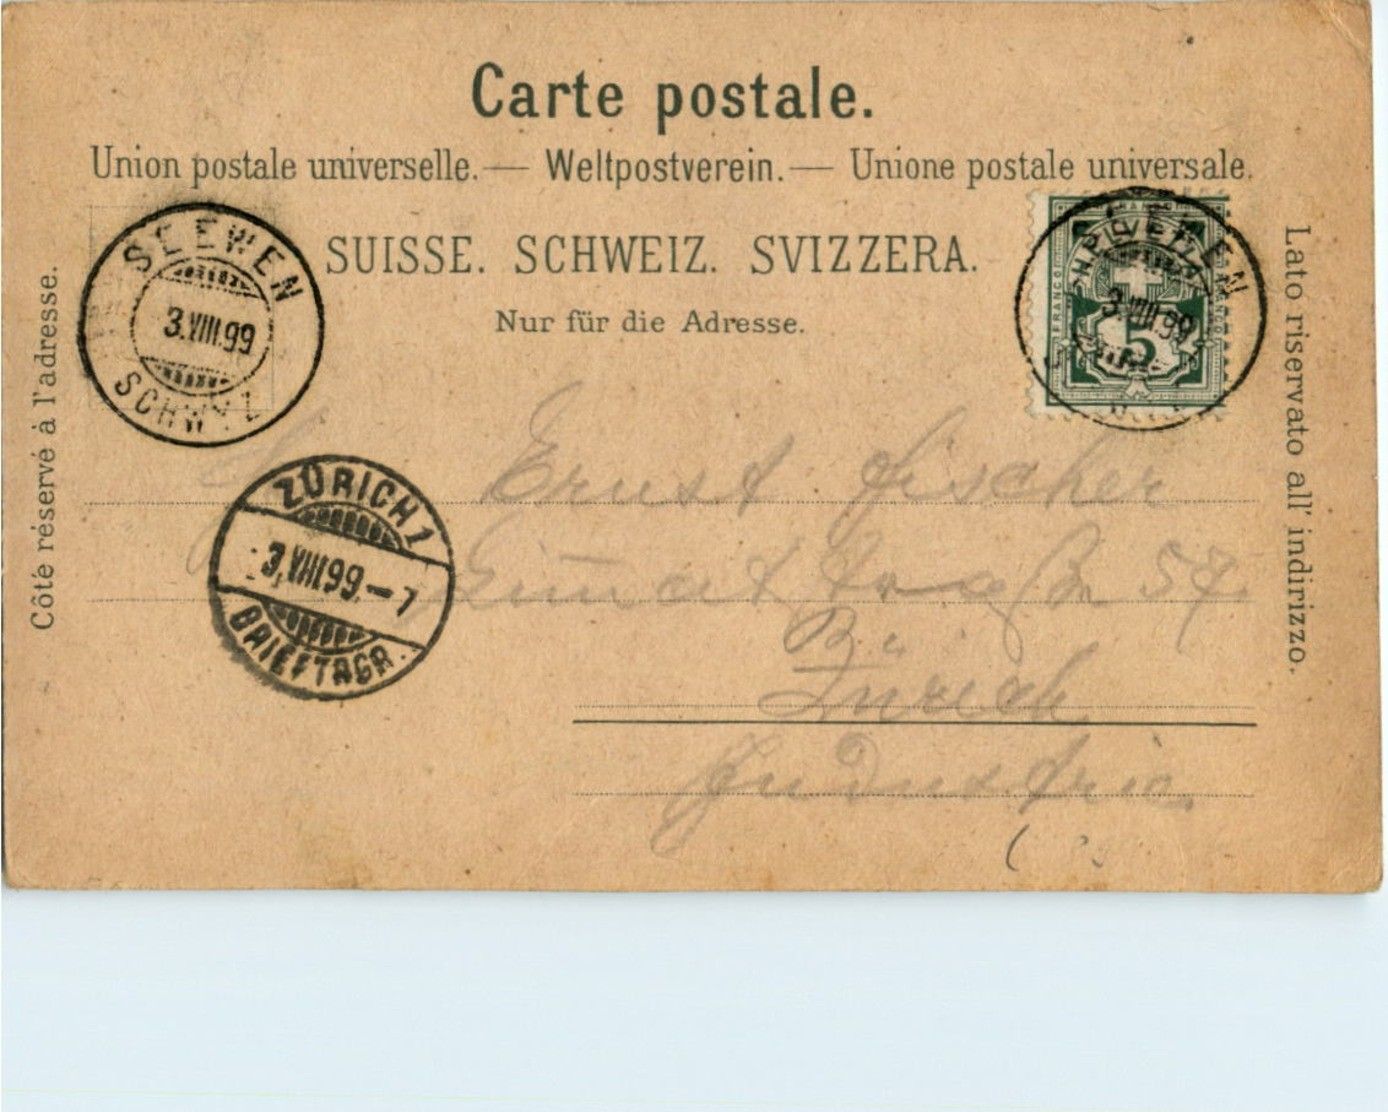 Carte postale.
Union postale universelle.— Weltpostverein.— Unione postale universale.
SUISSE. SCHWEIZ. SVIZZERA.
Nur für die Adresse.
Côté réservé à l'adresse.
Lato riservato all' indirizzo.
SEEWEN
3.VIII.99
SCHWYZ
FRANCO
5
3.VIII.99
ZÜRICH 1
3.VIII.99.–7
BRIEFTRGR.
Ernst Fischer
Limatstraße 57.
Zürich
Industrie